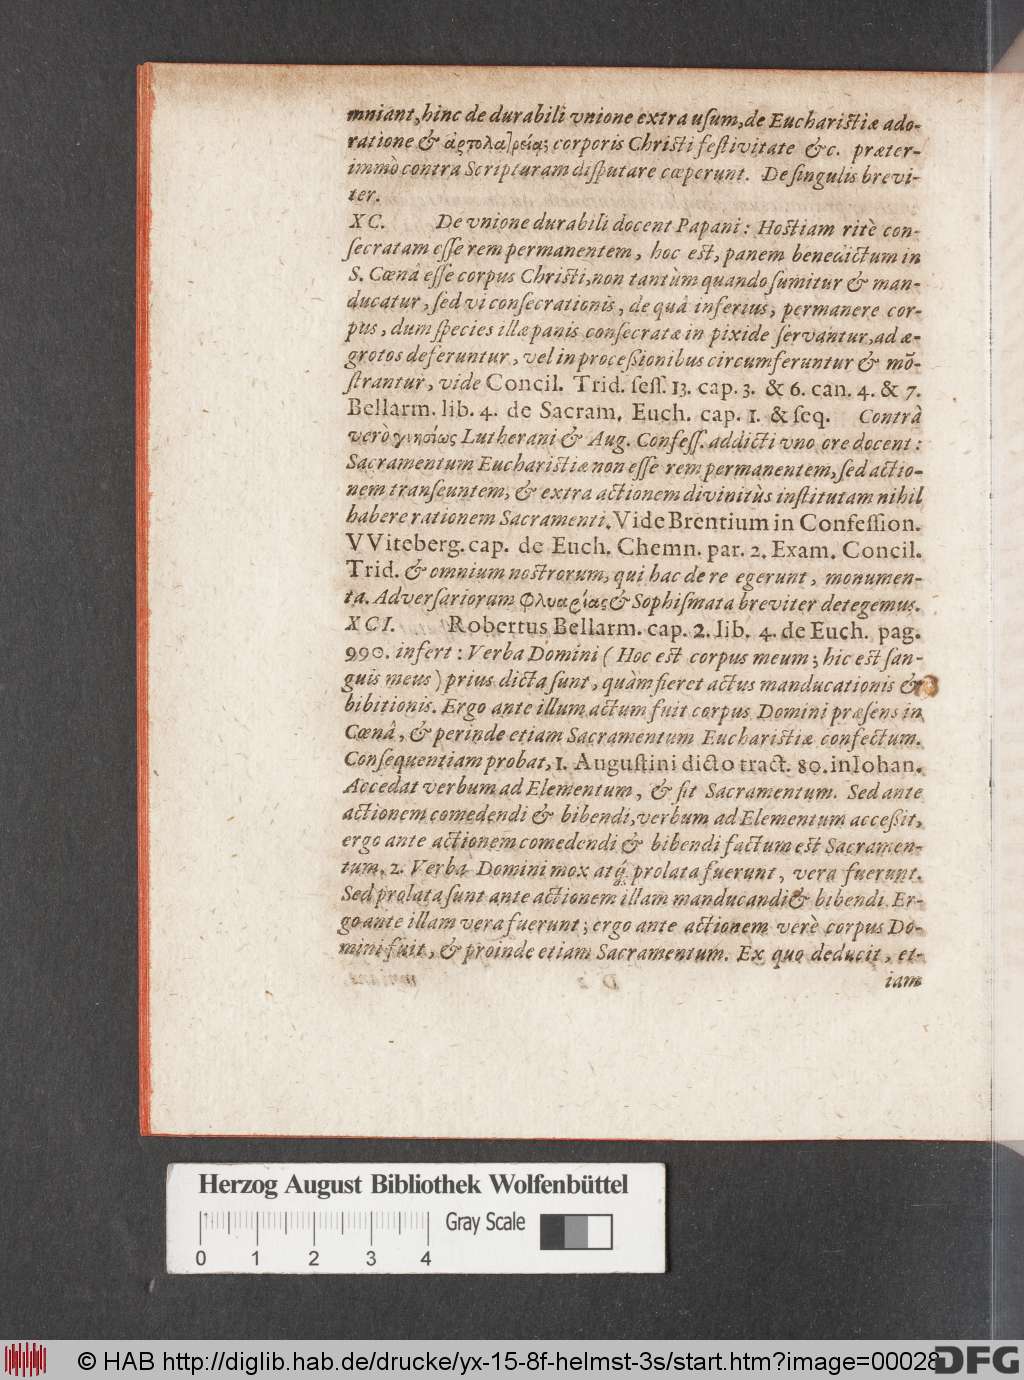 mniant, hinc de durabili vnione extra uſum, de Euchariſtiæ ado-
ratione & ἀρτολατρείᾳ; corporis Chriſti feſtivitate &c. præter-
immò contra Scripturam diſputare cœperunt. De ſingulis brevi-
ter.
XC. De vnione durabili docent Papani: Hoſtiam ritè con-
ſecratam eſſe rem permanentem, hoc eſt, panem benedictum in
S. Cœnâ eſſe corpus Chriſti, non tantùm quando ſumitur & man-
ducatur, ſed vi conſecrationis, de quâ inferius, permanere cor-
pus, dum ſpecies illæ panis conſecratæ in pixide ſervantur, ad æ-
grotos deferuntur, vel in proceßionibus circumferuntur & mõ-
ſtrantur, vide Concil. Trid. ſeſſ. 13. cap. 3. & 6. can. 4. & 7.
Bellarm. lib. 4. de Sacram. Euch. cap. 1. & ſeq. Contrà
verò γνησίως Lutherani & Aug. Confeſſ. addicti vno ore docent:
Sacramentum Euchariſtiæ non eſſe rem permanentem, ſed actio-
nem tranſeuntem, & extra actionem divinitùs inſtitutam nihil
habere rationem Sacramenti. Vide Brentium in Confeſſion.
VViteberg. cap. de Euch. Chemn. par. 2. Exam. Concil.
Trid. & omnium noſtrorum, qui hac de re egerunt, monumen-
ta. Adverſariorum Φλυαρίας & Sophiſmata breviter detegemus.
XCI. Robertus Bellarm. cap. 2. lib. 4. de Euch. pag.
990. infert: Verba Domini (Hoc eſt corpus meum; hic eſt ſan-
guis meus) prius dicta ſunt, quàm fieret actus manducationis &
bibitionis. Ergo ante illum actum fuit corpus Domini præſens in
Cœnâ, & perinde etiam Sacramentum Euchariſtiæ confectum.
Conſequentiam probat, 1. Auguſtini dicto tract. 80. in Iohan.
Accedat verbum ad Elementum, & fit Sacramentum. Sed ante
actionem comedendi & bibendi, verbum ad Elementum acceßit,
ergo ante actionem comedendi & bibendi factum eſt Sacramen-
tum. 2. Verba Domini mox atq́; prolata fuerunt, vera fuerunt.
Sed prolata ſunt ante actionem illam manducandi & bibendi. Er-
go ante illam vera fuerunt; ergo ante actionem verè corpus Do-
mini fuit, & proinde etiam Sacramentum. Ex quo deducit, et-
iam
Herzog August Bibliothek Wolfenbüttel
Gray Scale
0 1 2 3 4
© HAB http://diglib.hab.de/drucke/yx-15-8f-helmst-3s/start.htm?image=00028
DFG